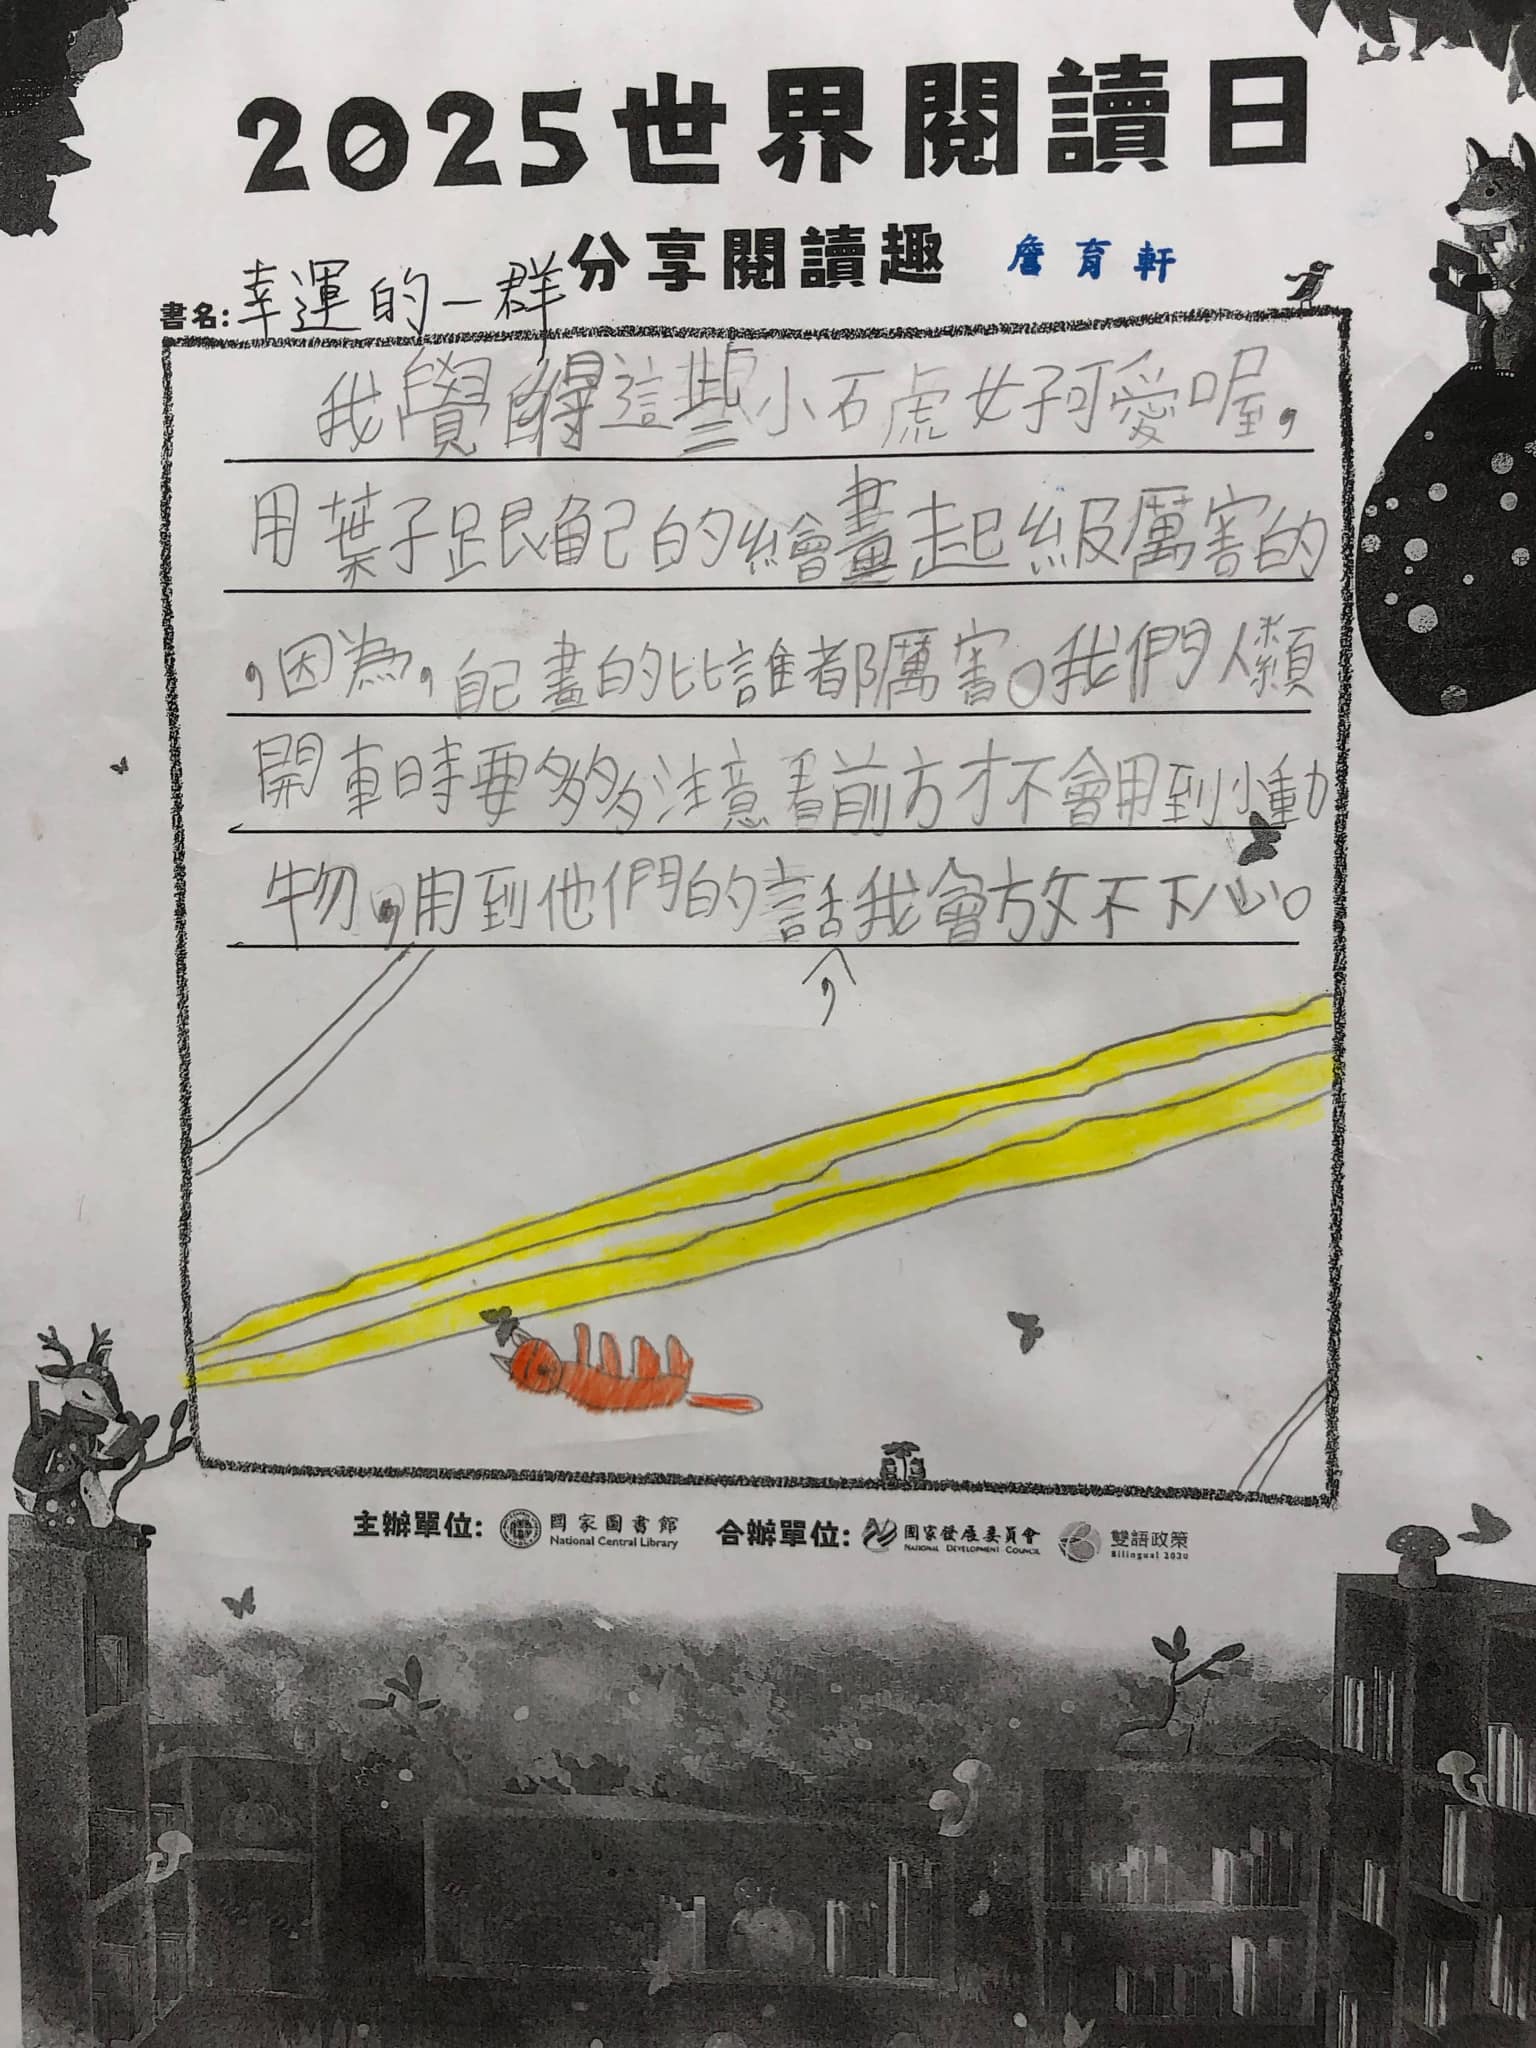 2025世界閱讀日
分享閱讀趣 詹育軒
書名:幸運的一群
我覺得這些小石虎好可愛喔,
用葉子跟自己的繪畫超級厲害的
,因為,自己畫的比誰都厲害。我們人類
開車時要多多注意看前方才不會用到小動
物,用到他們的話,我會放不下心。
主辦單位: 國家圖書館 合辦單位: 國家發展委員會 雙語政策
National Central Library NATIONAL DEVELOPMENT COUNCIL Bilingual 2030